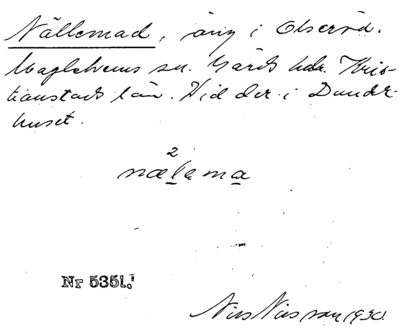 Nällemad, äng i Olseröd.
Maglehems sn. Gärds hdr. Kris-
tianstads län. Vid der i Dunder-
huset.
2
nælama
Nr 5351.
Nils Nilsson 1930.